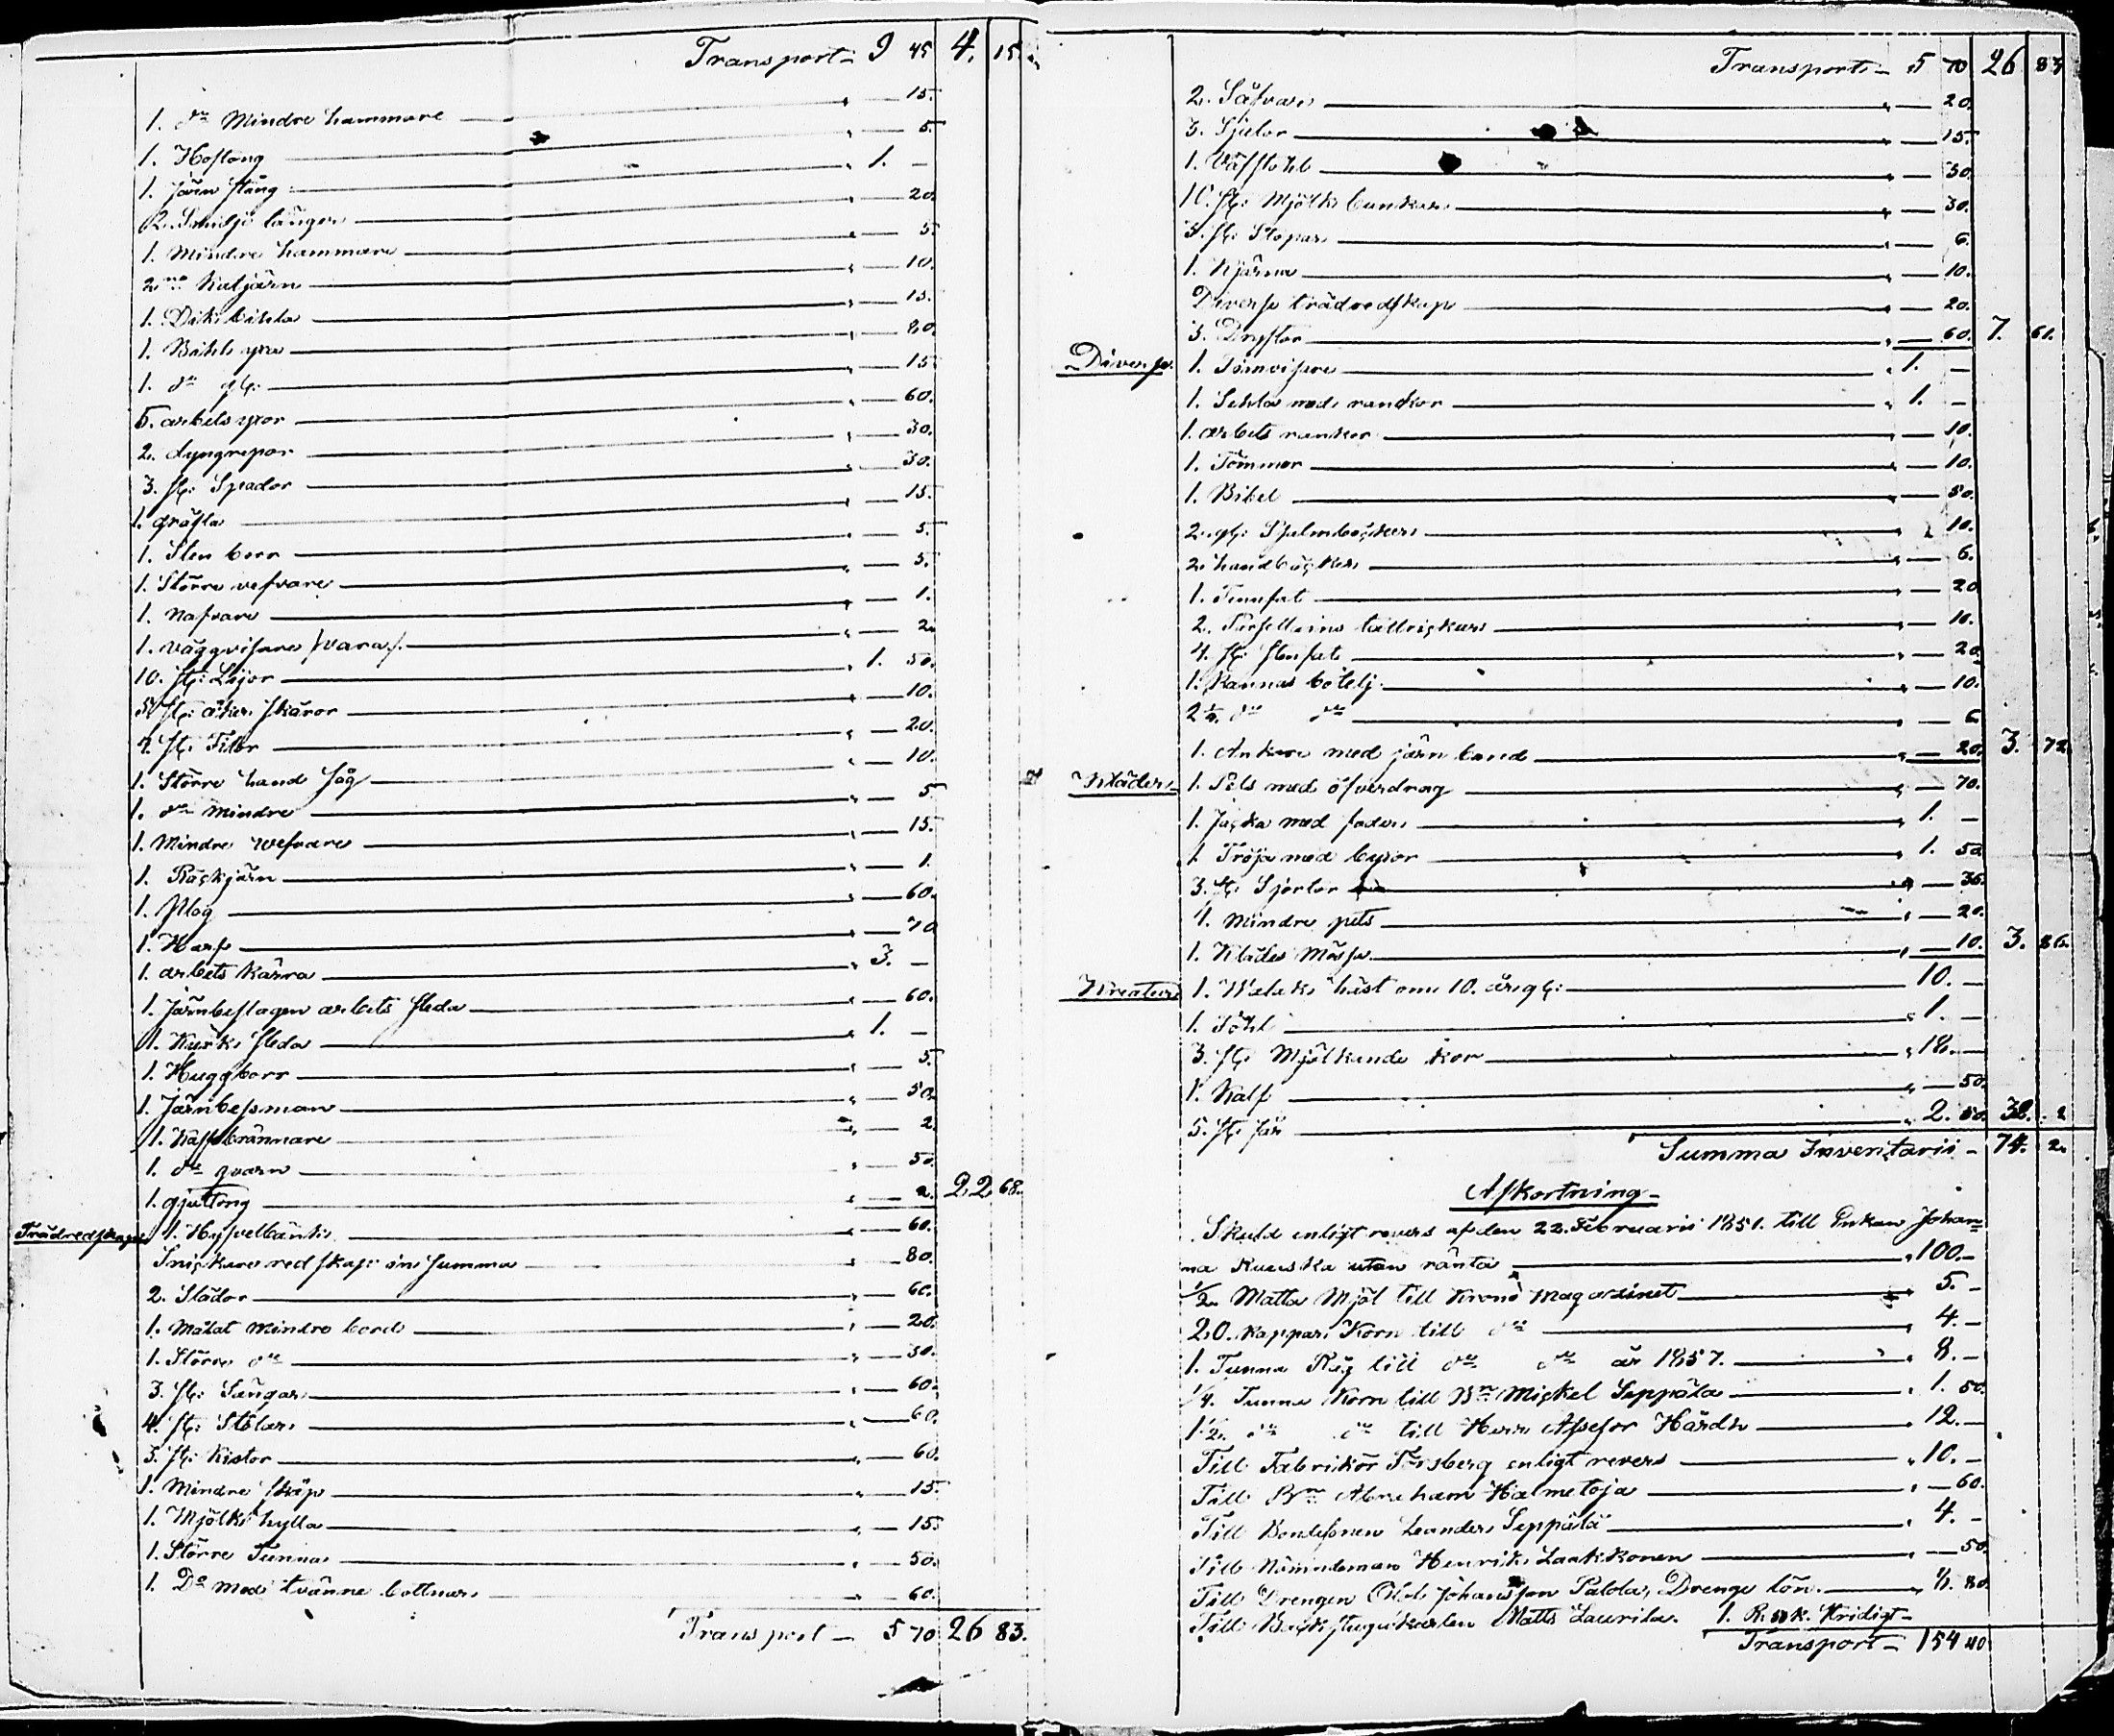 Transport - 9 45 4. 15.
1. do Mindre hammare 15.
1. Hoftång 5.
1. Järn stång 1. -
2. Smidje tänger 20.
1. Mindre hammare 5.
2. Kaljärn 10.
1. Dikes bihla 15.
1. Bihls yxa 80.
1. do gl: 15.
5. arbets yxor 60.
2. dyngrepor 30.
3. st: Spador 30.
1. gräfta 15.
1. Sten borr 5.
1. Större vefvare 5.
1. Nafvare 1.
1. väggvisare /vara/ 2.
10. st: Lijor 1. 50.
5 st: åker skäror 10.
4. st: Filar 20.
1. Större hand såg 10.
1. do mindre 5
1. Mindre vefvare 15.
1. Räckjärn 1.
1. Plog 60.
1. Harf 70
1. arbets kärra 3. -
1. Järnbeslagen arbets släda 60.
1. Kurk släda 1. -
1. Huggborr 5.
1. Järnbesman 50.
1. Kaffebrännare 2.
1. do qvarn 50.
1. gjuttång 2. 22 68.
Trädredskaper 1. Hyfvelbänk 60.
Snickare redskap in summa 80.
2. Städor 60.
1. Målat mindre bord 20.
1. Större do 30.
3. st: Sängar 60.
4. st: Stolar 60.
3. st: Kistor 60.
1. Mindre skåp 15.
1. Mjölks hylla 15.
1. Större Tunna 50.
1. Do med tvänne bottnar 60.
Transport - 5 70 26 83.
Transport - 5 70 26 83
2. Såfvar 20.
3. Sjular 15.
1. Väfstohl 50.
10. st: Mjölks bunkar 30.
3. st: Stopar 6.
1. Kjärna 10.
Diverse trädredskap 20.
3. Dryftor 60. 7. 61.
Diverse. 1. Timvisare 1. -
1. Sehla med rankor 1. -
1. arbets rankor 10.
1. Tömmar 10.
1. Bibel 80.
2. gl: Psalmböcker 10.
2. handböcker 6.
1. Tennfat 20
2. Porselleins tallrickar 10.
4. st: stenfat 20
1. Kannas botelj 10.
2 ½ do do 6
1. Ankare med järn band 20. 3. 72.
Kläder 1. Pels med öfverdrag 70.
1. Jacka med foder 1. -
1. Tröja med byxor 1. 50
3. st: Sjortor 36.
4. mindre pels 20.
1. Klädes Mössa 10. 3. 86.
Kreatur 1. Walak häst om 10. år gl: 10. -
1. Fåhl 1. -
3. st: Mjölkande kor 18. -
1. Kalf 50.
5. st: får 2. 50 32. 2
Summa Inventarii - 74. 2.
Afkortning -
Skuld enligt revers af den 22. Februarii 1851. till Enkan Johan=
na Ruuska utan ränta 100. -
½ Matta Mjöl till Krono Magazinet 5. -
20. kappar Korn till do 4. -
1. Tunna Råg till do do år 1857. 8. -
¼. Tunna Korn till Bn Mickel Seppälä 1. 50
1½. do do till Herr Assesor Hårdh 12. -
Till Fabrikör Forsberg enligt revers 10. -
Till Bn Abraham Halmetoja 60.
Till Bondesonen Leander Seppälä 4. -
Till Nämndeman Henrik Laakkonen 50
Till Drengen Johansson Palola, Drenge lön 80
Till Backstugukarlen Matts Laurila. 1. R. Kridigt -
Transport - 154 40